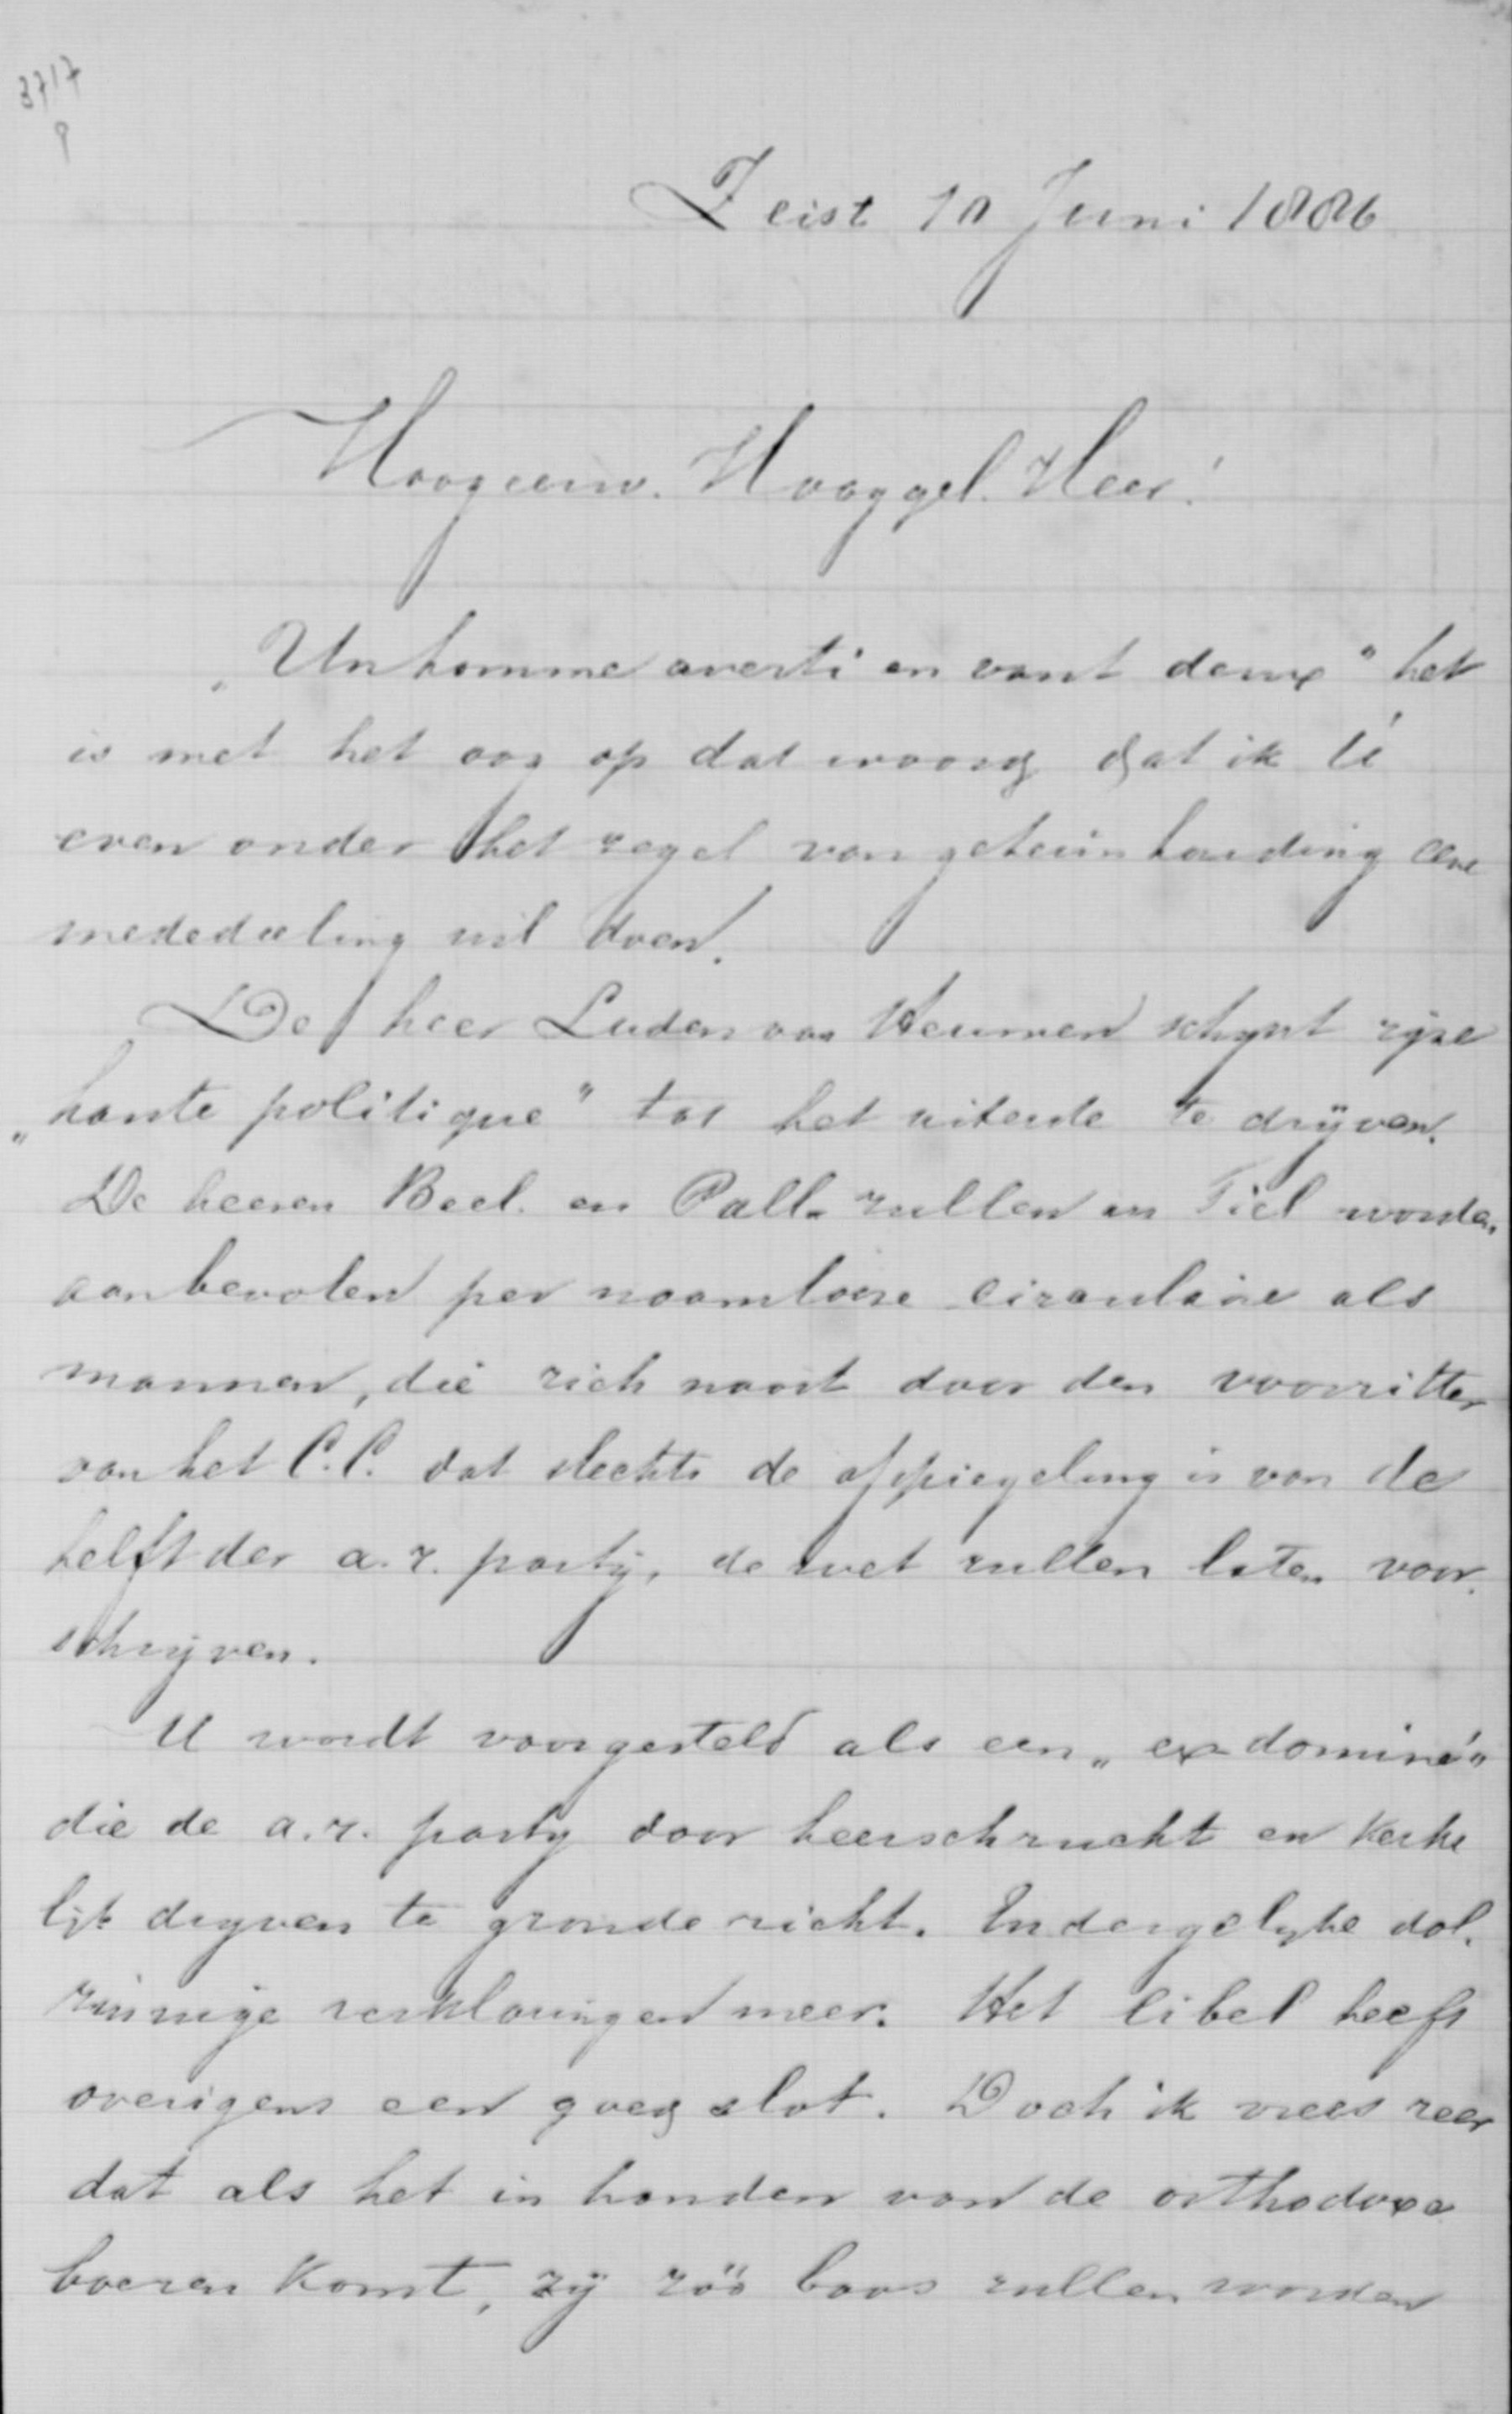 3717
Zeist 10 Juni 1886
Hoogeerw. Hooggel. Heer!
„Un homme averti en vaut deux" het
is met het oog op dat woord dat ik U
even onder het zegel van geheimhouding eene
mededeeling wil doen.
De heer Luden van Heumen schijnt zijne
„haute politique" tot het uiterste te drijven.
De heeren Beel. en Pall. zullen in Tiel worden
aanbevolen per naamlooze circulaire als
mannen, die zich nooit door den voorzitter
van het C.C. dat slechts de afspiegeling is van de
helft der a.r. partij, de wet zullen laten voor-
schrijven.
U wordt voorgesteld als een „ex-dominé"
die de a.r. partij door heerschzucht en kerke
lijk drijven te gronde richt. En dergelijke dol-
zinnige verklaringen meer. Het libel heeft
overigens een goed slot. Doch ik vrees zeer
dat als het in handen van de orthodoxe
boeren komt, zij zóó boos zullen worden